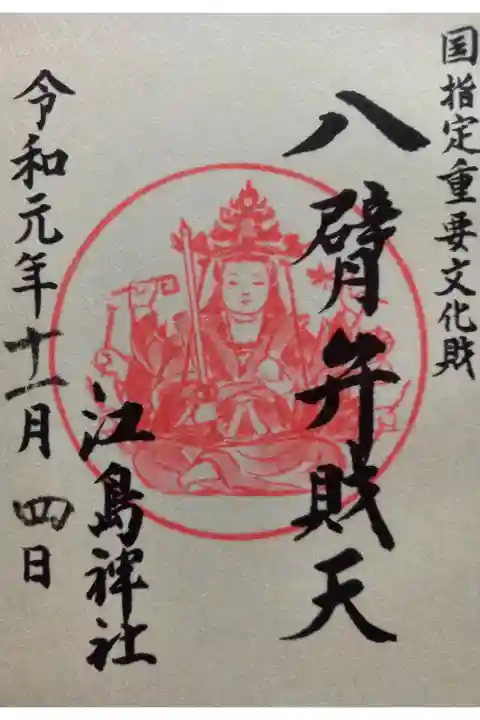 国指定重要文化財
八臂弁財天
江島神社
令和元年十一月四日